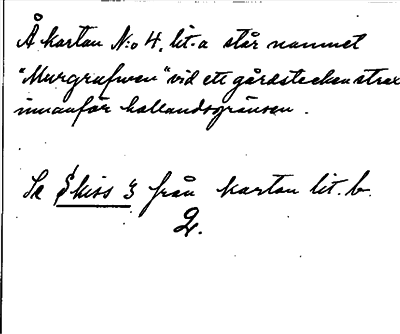 Å kartan N:o 4, lit. a står namnet
"Murgrufwen" vid ett gårdstecken strax
innanför hallandsgränsen.
Se Skiss 3 från kartan lit. b.
2.